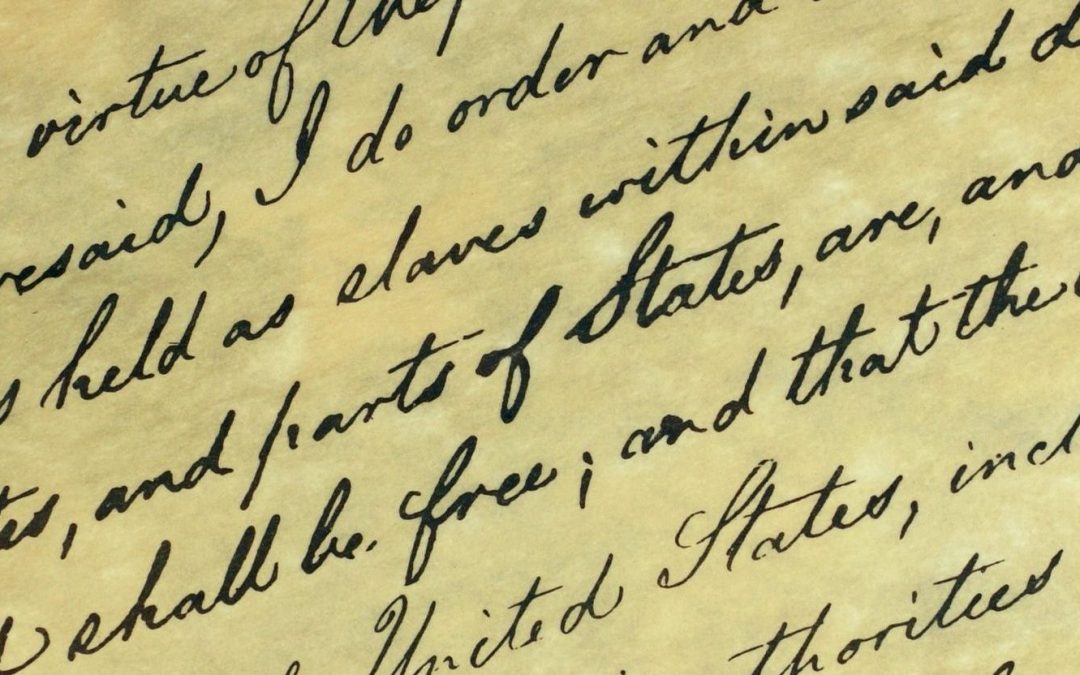 virtue of the
resaid, I do order and
held as slaves within said d
tes, and parts of States, are, and
shall be free; and that the
United States, incl
thorities